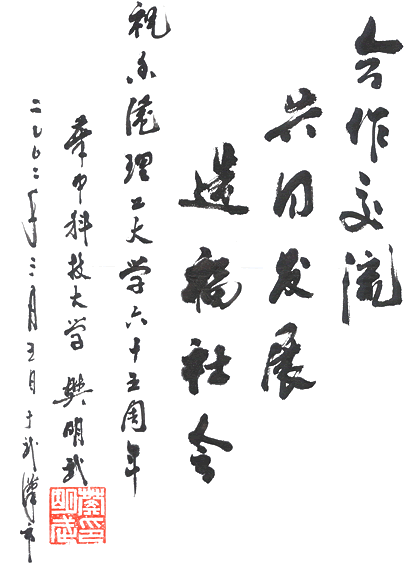 合作交流
共同发展
造福社会
祝香港理工大学六十五周年
華中科技大学 樊明武
二〇〇二年三月五日于武漢市